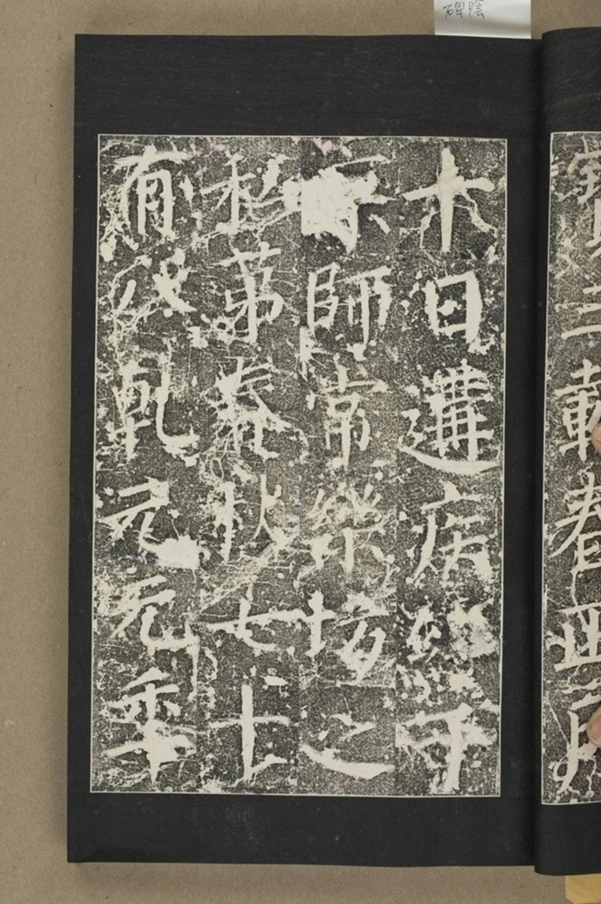 寶三載春正月
十日遘疾終于
京師常樂坊之
私第春秋七十
有八乾元元年